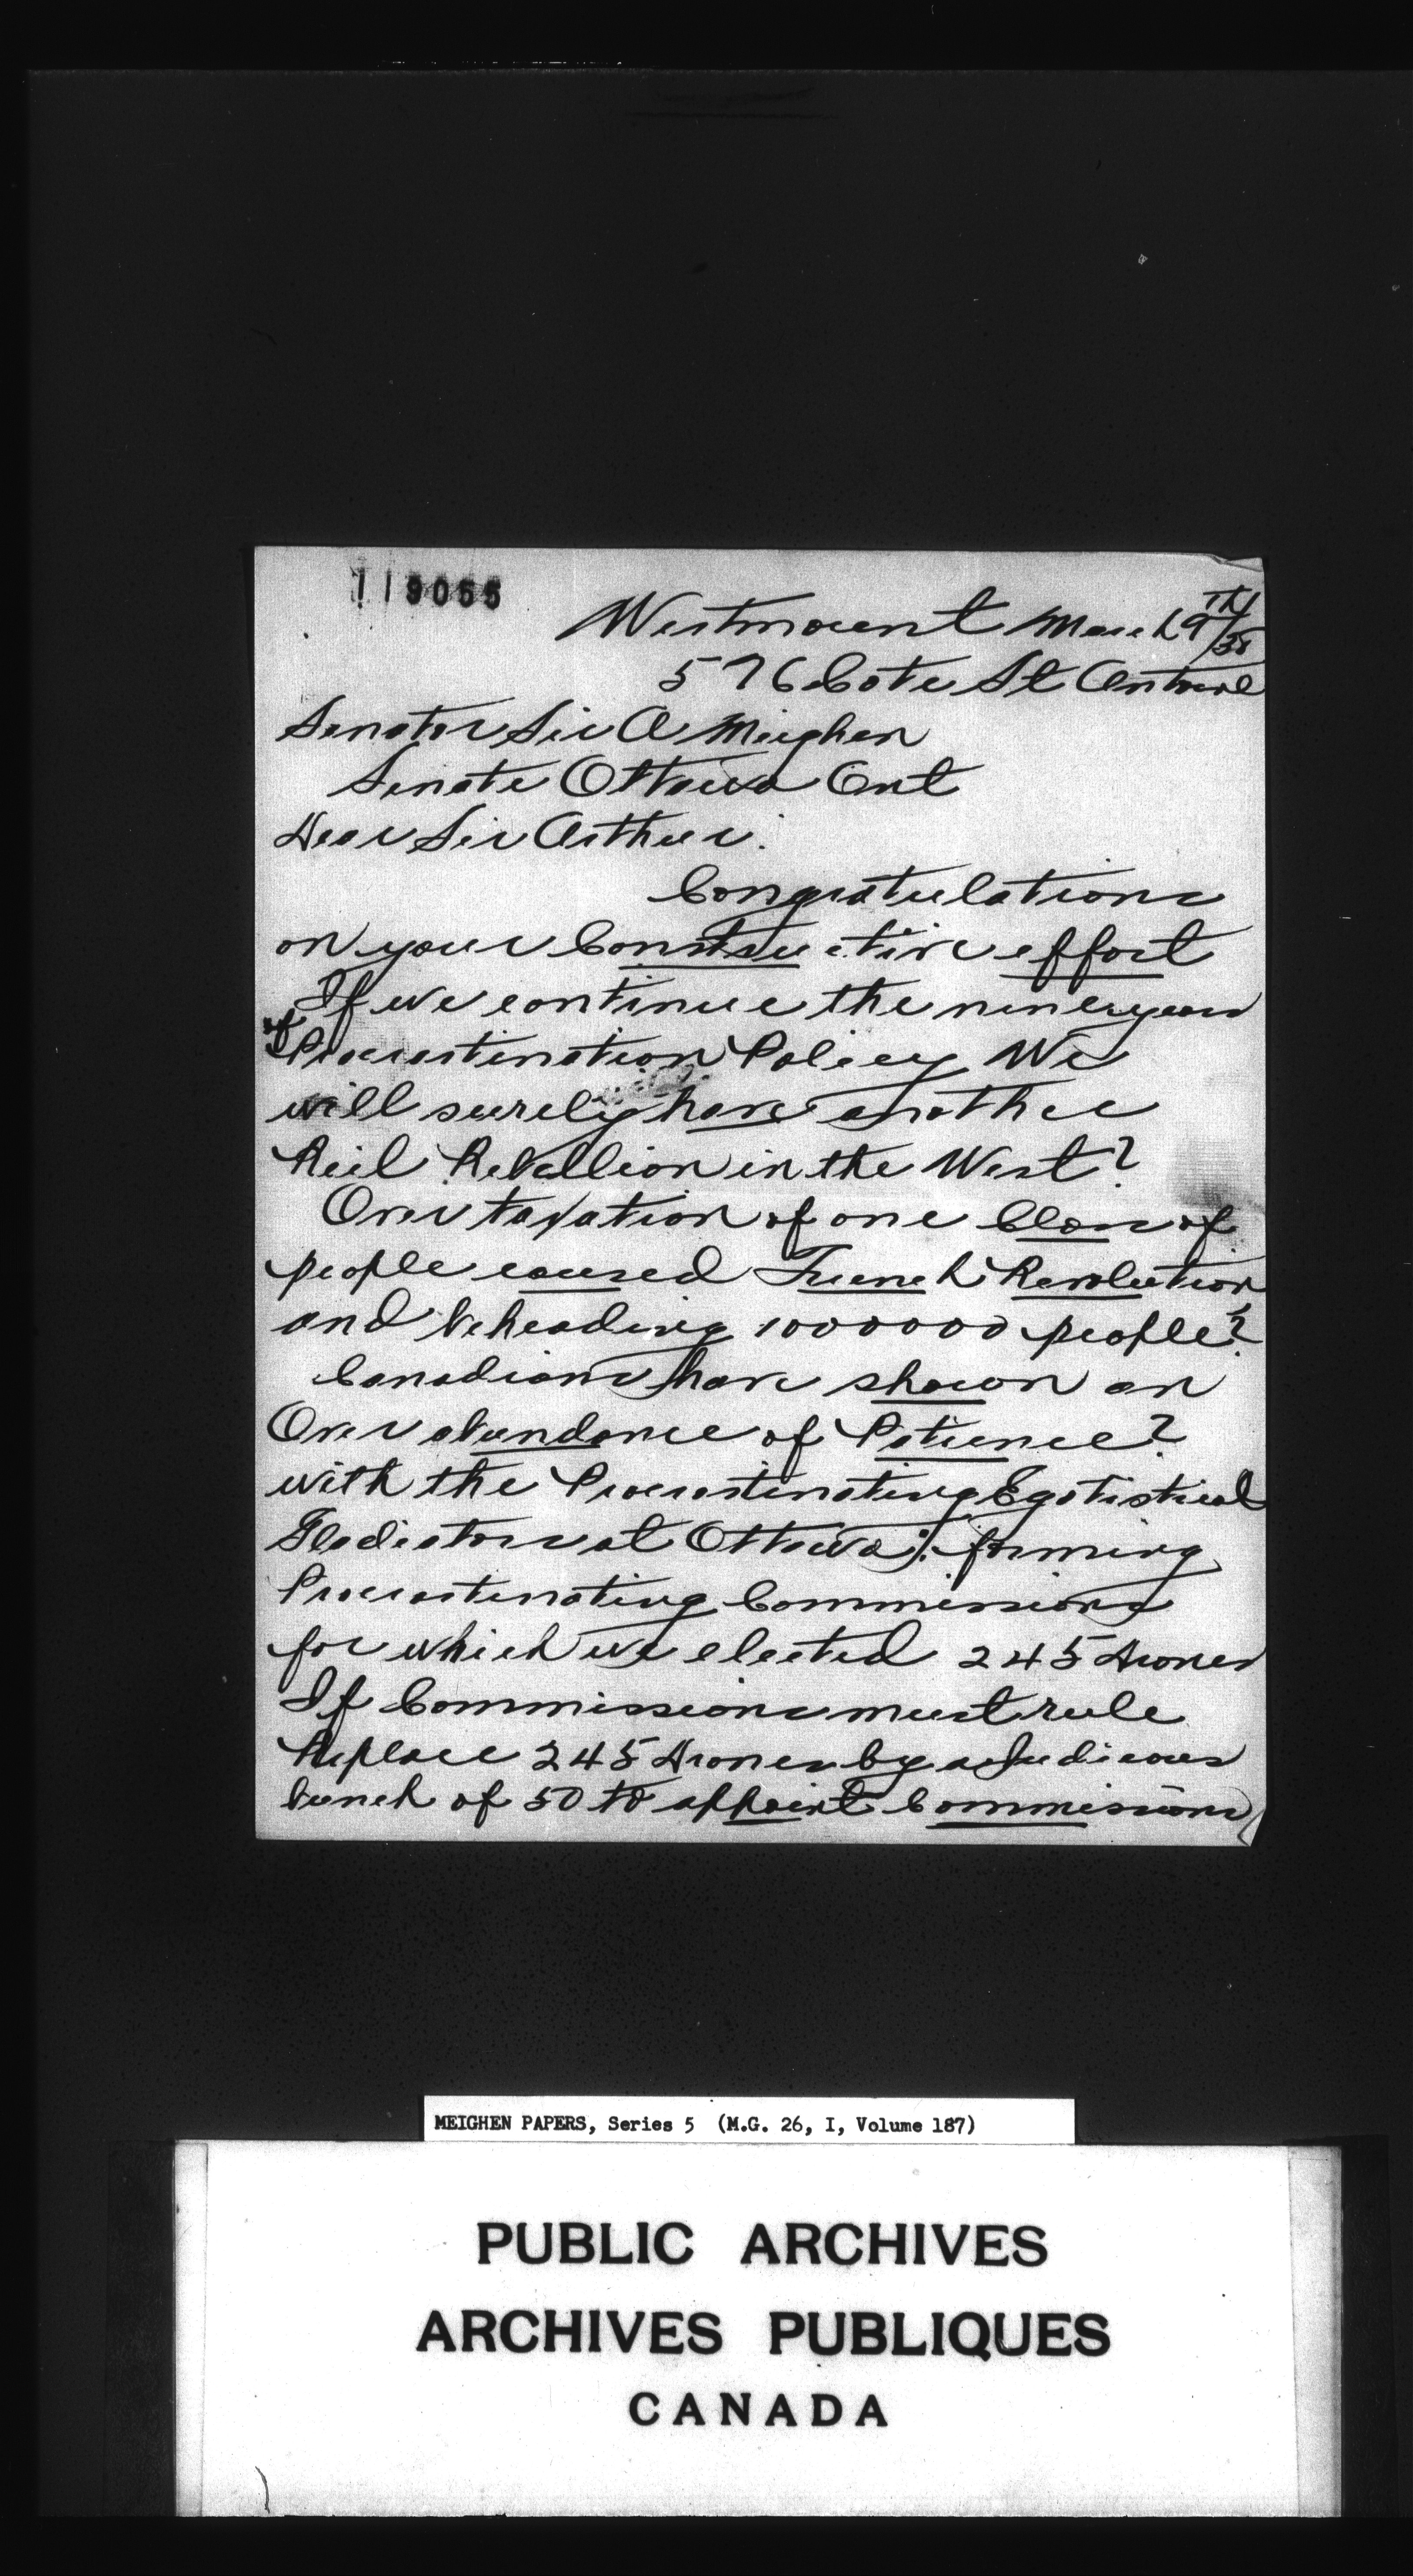 119055
Westmount March 9th/38
576 Cote St Antoine
Senator Sir A Meighen
Senate Ottawa Ont
Dear Sir Arthur:
Congratulations
on your Constructive effort
If we continue the nine years
of Procrastination Policy We
will surely have another
Reil Rebellion in the West?
Over taxation of one Class of
people caused French Revolution
and beheading 1000000 people?
Canadians have shown an
Over abundance of Patience?
with the Procrastinating Egotistical
Gladiators at Ottawa: forming
Procrastinating Commissions
for which we elected 245 Drones
If Commissions must rule
Replace 245 Drones by a Judicious
bunch of 50 to appoint Commissions
MEIGHEN PAPERS, Series 5 (M.G. 26, I, Volume 187)
PUBLIC ARCHIVES
ARCHIVES PUBLIQUES
CANADA